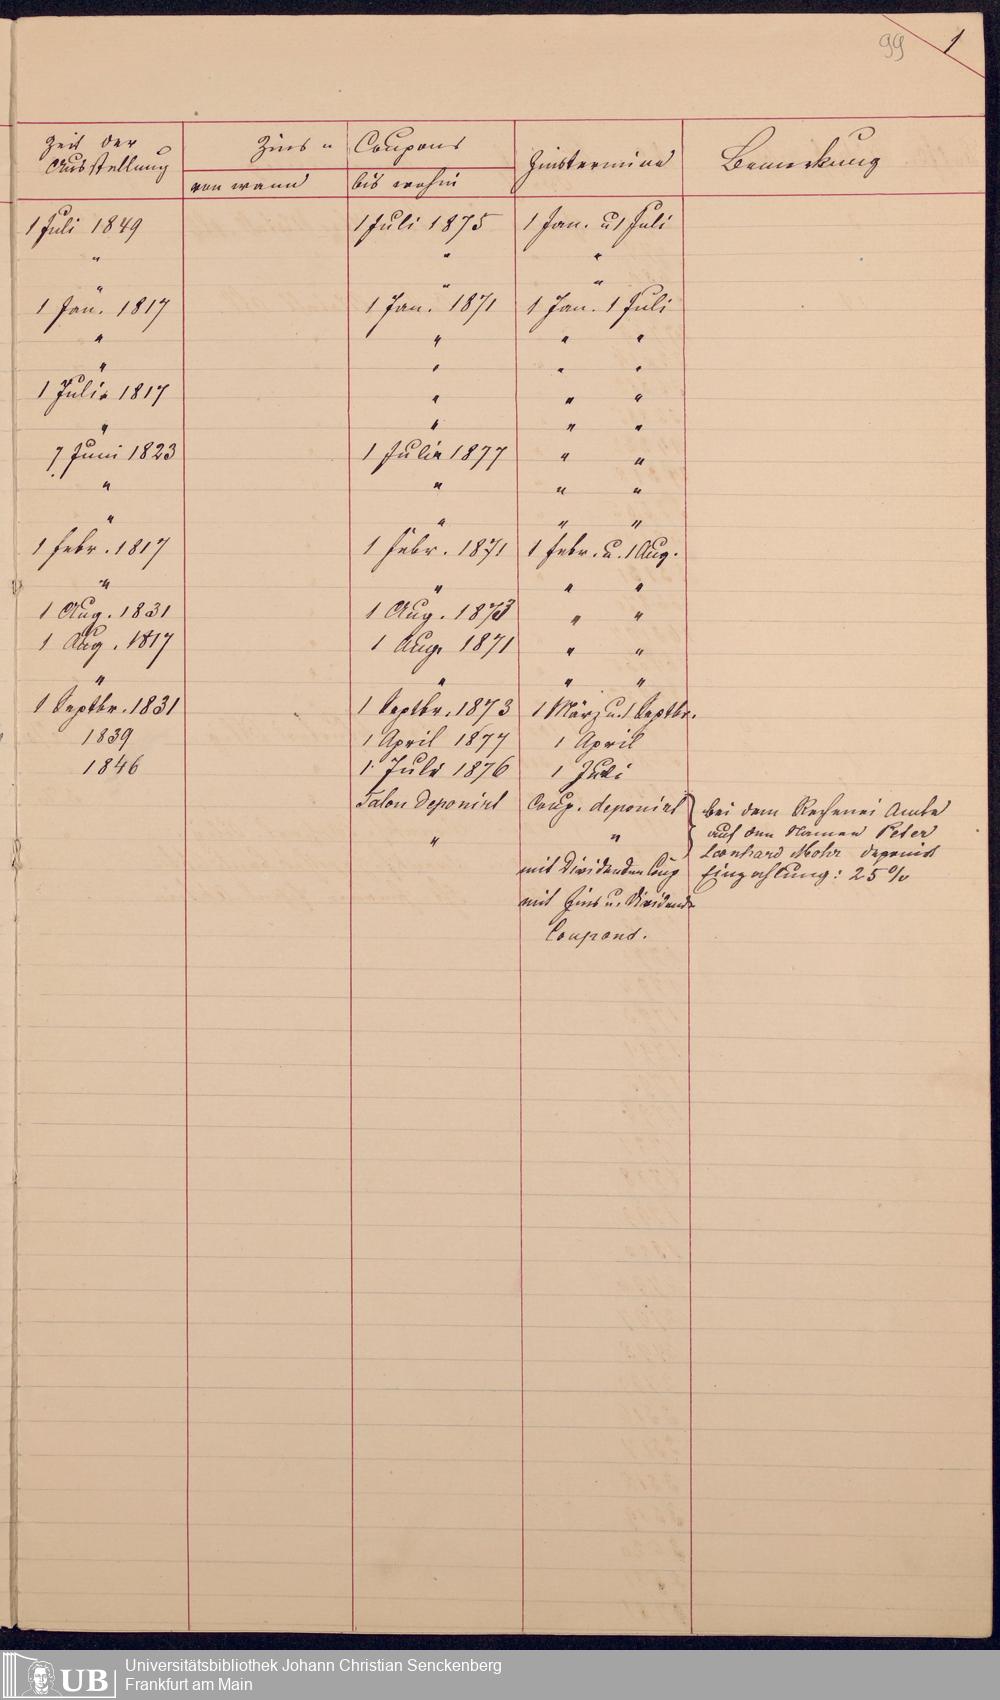 99 1
Zeit der Zins u Coupons
Ausstellung Zinstermine Bemerkung
von wann bis wohin
1 Juli 1849 1 Juli 1875 1 Jan. u 1 Juli
" " "
" " "
1 Jan. 1817 1 Jan. 1871 1 Jan. 1 Juli
" " " "
" " " "
1 Juli 1817 " " "
" " " "
7 Juni 1823 1 Juli 1877 " "
" " " "
" " " "
1 Febr. 1817 1 Febr. 1871 1 Febr. u. 1 Aug.
" " " "
1 Aug. 1831 1 Aug. 1873 " "
1 Aug. 1817 1 Aug. 1871 " "
" " " "
1 Septbr. 1831 1 Septbr. 1873 1 März u. 1 Septbr.
1839 1 April 1877 1 April
1846 1 Juli 1876 1 Juli
Talon deponirt Coup. deponirt bei dem Rechenei Amte
" " auf den Namen Peter
Leonhard Mohr deponirt
mit Dividenden Coup Einzahlung: 25%
mit Zins u. Dividend
Coupons.
UB
Universitätsbibliothek Johann Christian Senckenberg
Frankfurt am Main